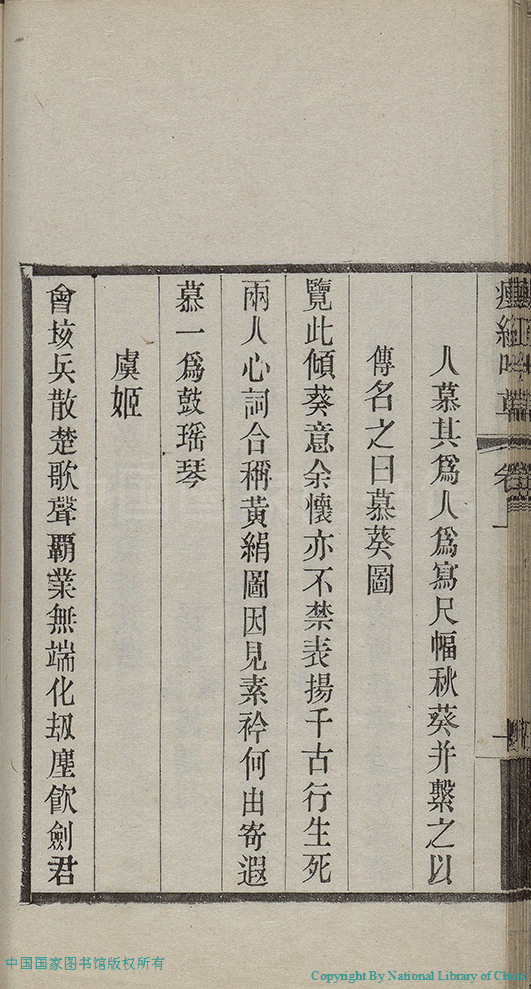 人慕其爲人爲寫尺幅秋葵并繫之以
傳名之曰慕葵圖
覽此傾葵意余懷亦不禁表揚千古行生死
兩人心詞合稱黃絹圖因見素衿何由寄遐
慕一爲鼓瑶琴
虞姬
會垓兵散楚歌聲覇業無端化刼塵飮劍君
中国国家图书馆版权所有
Copyright By National Library of China